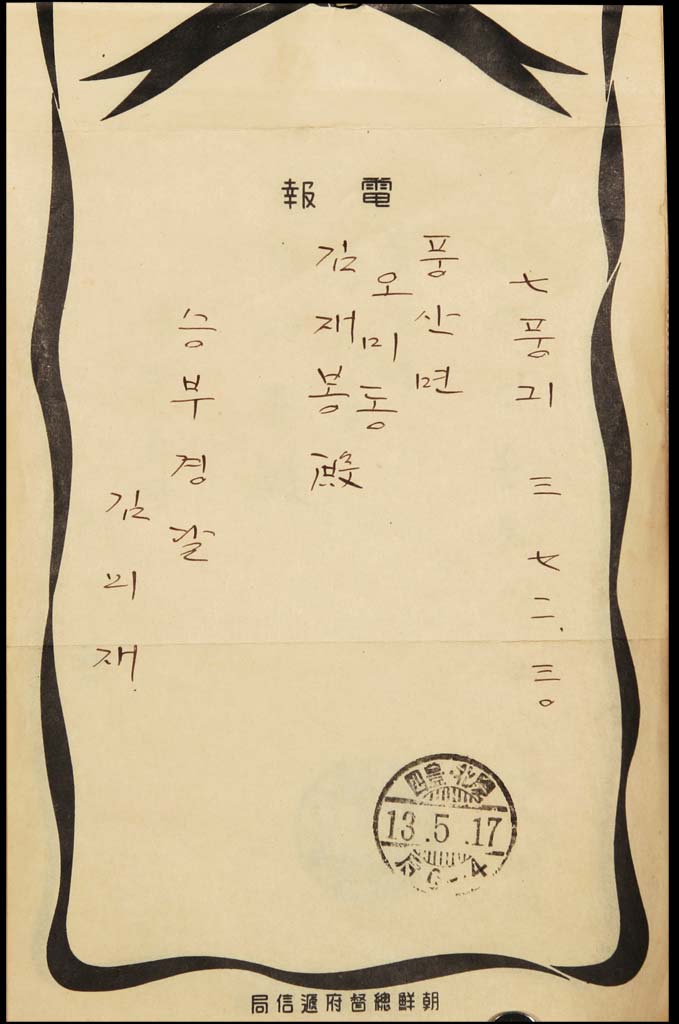 電報
七풍기 三 七二、三〇
풍산면
오미동
김재봉殿
승부경
김 재
慶北・豊山
13.5.17
朝鮮總督府遞信局